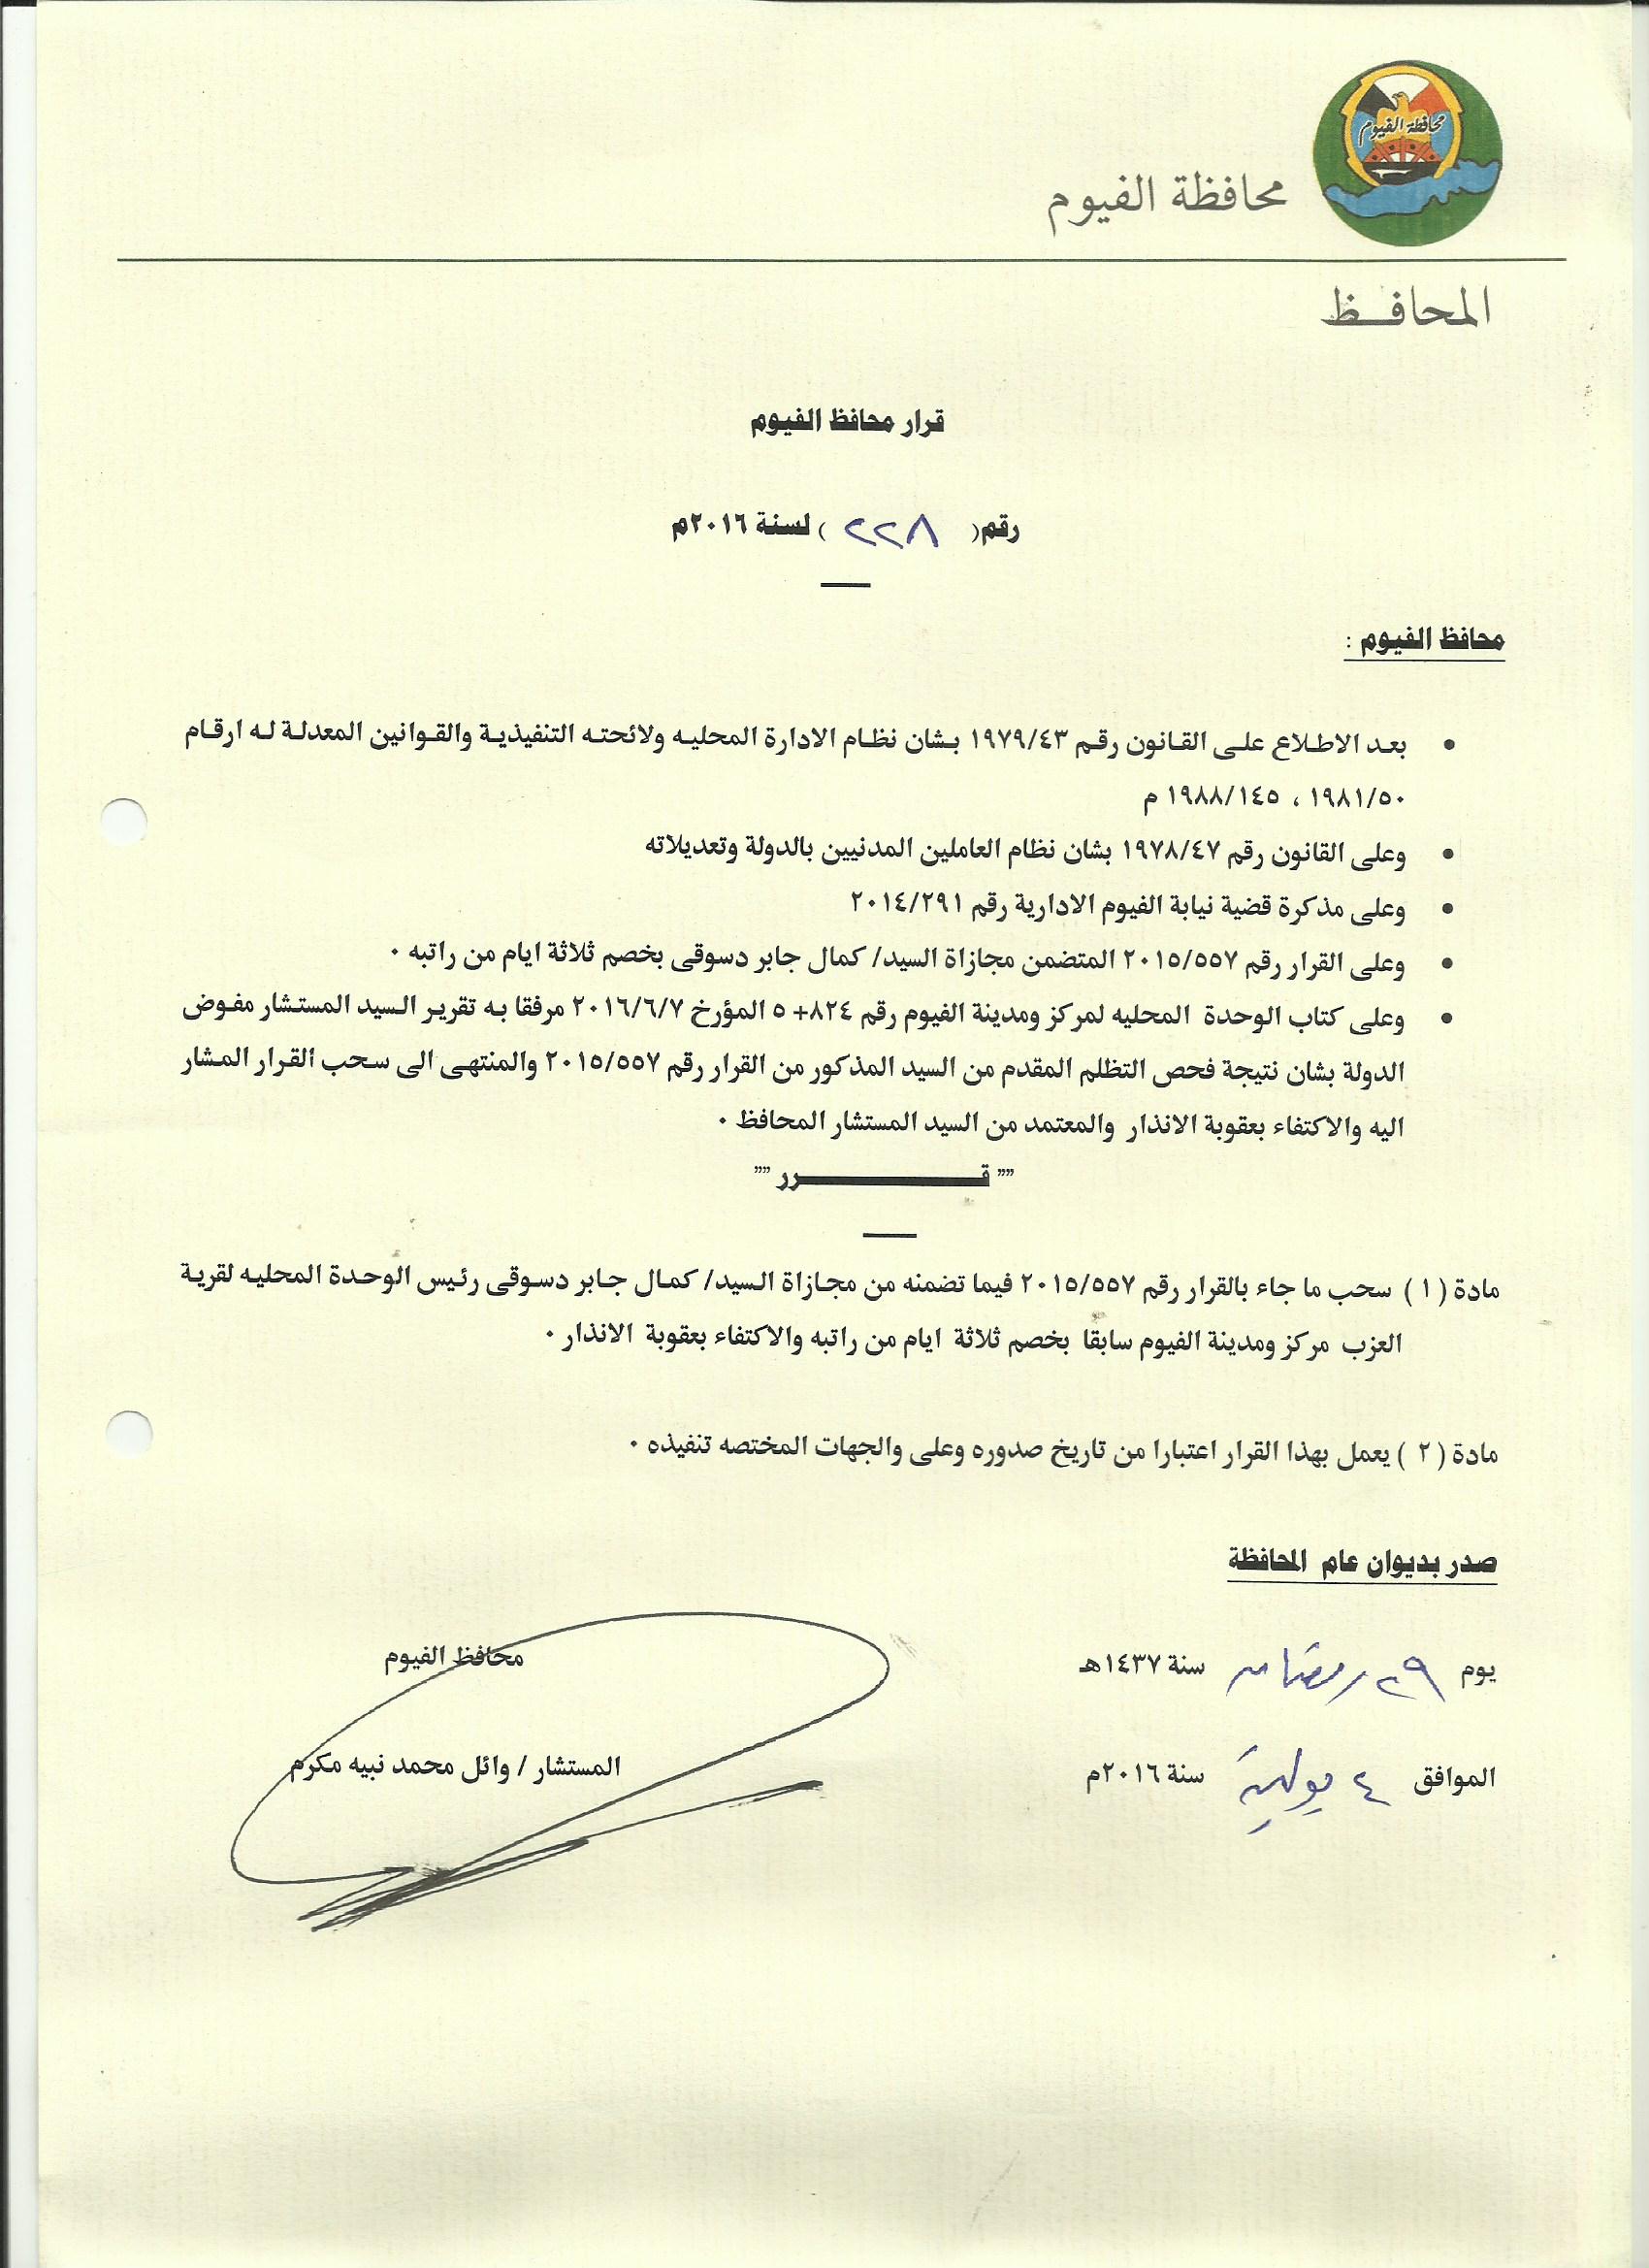 محافظة الفيوم
محافظة الفيوم
المحافــظ
قرار محافظ الفيوم
رقم( ٢٢٨ ) لسنة ٢٠١٦م
محافظ الفيوم :
• بعد الاطلاع على القانون رقم ١٩٧٩/٤٣ بشان نظام الادارة المحليه ولائحته التنفيذية والقوانين المعدلة له ارقام
١٩٨١/٥٠ ، ١٩٨٨/١٤٥ م
• وعلى القانون رقم ١٩٧٨/٤٧ بشان نظام العاملين المدنيين بالدولة وتعديلاته
• وعلى مذكرة قضية نيابة الفيوم الادارية رقم ٢٠١٤/٢٩١
• وعلى القرار رقم ٢٠١٥/٥٥٧ المتضمن مجازاة السيد/ كمال جابر دسوقى بخصم ثلاثة ايام من راتبه ٠
• وعلى كتاب الوحدة المحليه لمركز ومدينة الفيوم رقم ٨٢٤+ ٥ المؤرخ ٢٠١٦/٦/٧ مرفقا به تقرير السيد المستشار مفوض
الدولة بشان نتيجة فحص التظلم المقدم من السيد المذكور من القرار رقم ٢٠١٥/٥٥٧ والمنتهى الى سحب القرار المشار
اليه والاكتفاء بعقوبة الانذار والمعتمد من السيد المستشار المحافظ ٠
"" قــــــــــرر ""
مادة ( ١ ) سحب ما جاء بالقرار رقم ٢٠١٥/٥٥٧ فيما تضمنه من مجازاة السيد/ كمال جابر دسوقى رئيس الوحدة المحليه لقرية
العزب مركز ومدينة الفيوم سابقا بخصم ثلاثة ايام من راتبه والاكتفاء بعقوبة الانذار ٠
مادة ( ٢ ) يعمل بهذا القرار اعتبارا من تاريخ صدوره وعلى والجهات المختصه تنفيذه ٠
صدر بديوان عام المحافظة
يوم ٢٩ رمضان سنة ١٤٣٧هـ
محافظ الفيوم
الموافق ٤ يولية سنة ٢٠١٦م
المستشار / وائل محمد نبيه مكرم